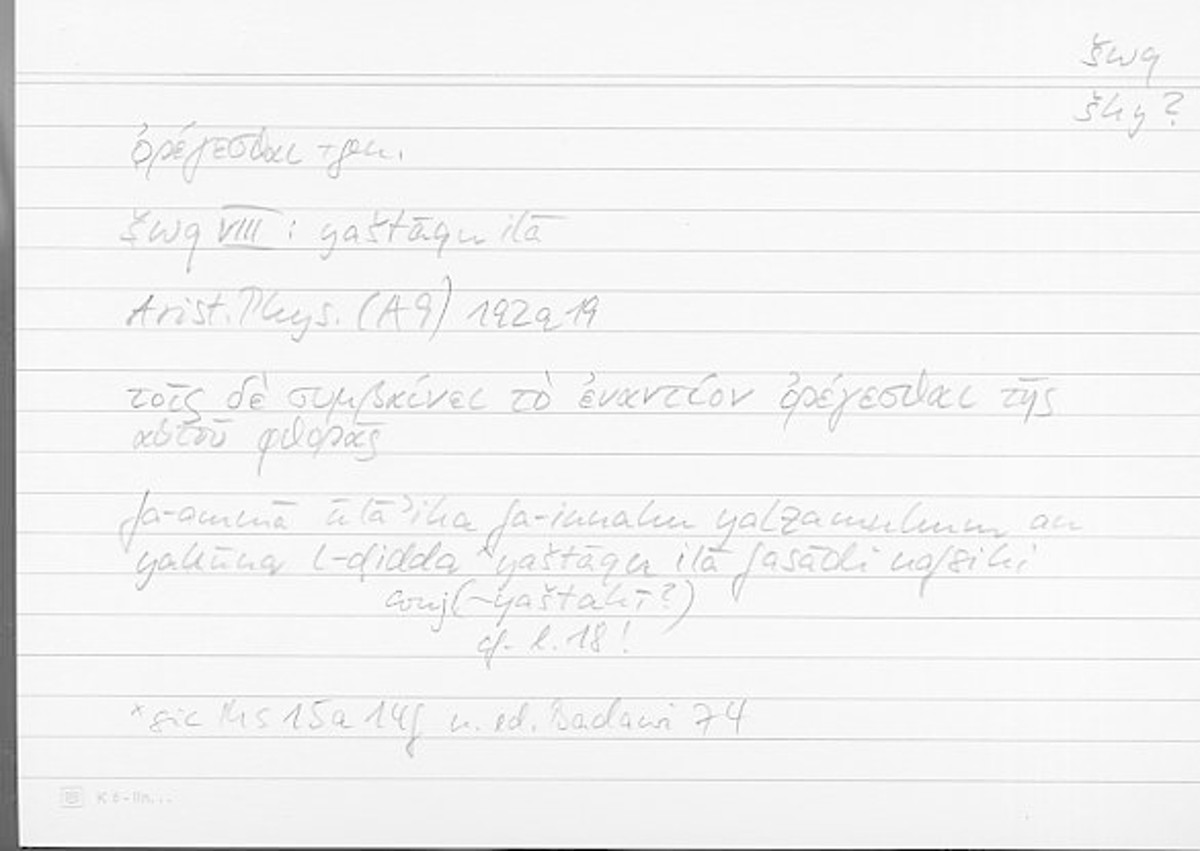 šwq
šhy ?
ὀρέγεσθαι + gen.
šwq VIII : yaštāqu ilā
Arist. Phys. (A 9) 192a19
τοῖς δὲ συμβαίνει τὸ ἐναντίον ὀρέγεσθαι τῆς
αὐτοῦ φθορᾶς
fa-ammā ūlāʾika fa-innahu yalzamuhum an
yakūna l-ḍidda *yaštāqu ilā fasādi nafsihi
conj(~yaštahī?)
cf. l. 18 !
*sic Ms 15a 14f u. ed. Badawi 74